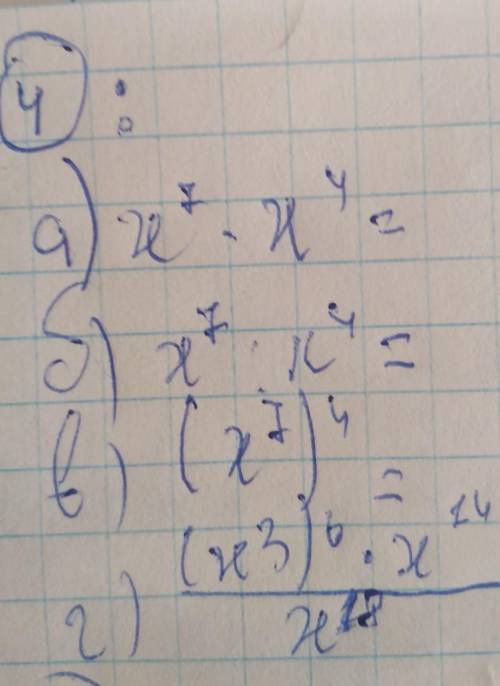 4 :
а) x⁷ · x⁴ =
б) x⁷ : x⁴ =
в) (x⁷)⁴ =
г) (x3)⁶ · x¹⁴ / x¹⁸